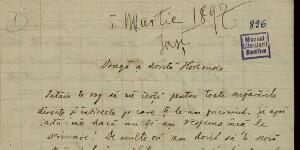 1
5 Martie 1897
Iași
896
Muzeul
Literaturii
Române
Dragă și dorită Hortensie
Întâiu te rog să mă ierți pentru toate supărările
directe și indirecte pe care ți le-am pricinuit. Și apoi
iartă-mă dacă nu ți-am răspuns încă la
scrisoare! De mult am dorit să-ți scriu